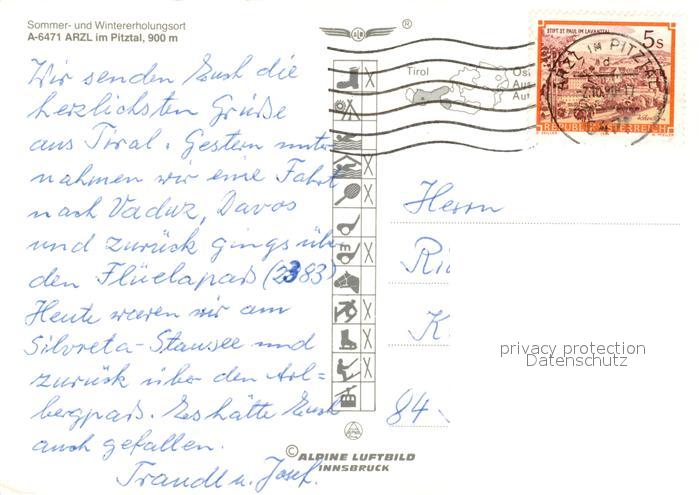 Sommer- und Wintererholungsort
A-6471 ARZL im Pitztal, 900 m
Wir senden Euch die
herzlichsten Grüße
aus Tirol. Gestern unter
nahmen wir eine Fahrt
nach Vaduz, Davos
und zurück gings über
den Flüelapaß (2383)
Heute waren wir am
Silvreta-Stausee und
zurück über den Arl=
bergpaß. Es hätte Euch
auch gefallen.
Traudl u. Josef.
®
Tirol
STIFT ST. PAUL IM LAVANTTAL
5s
REPUBLIK ÖSTERREICH
ARZL IM PITZTAL
Herrn
Ri
K
84
privacy protection
Datenschutz
© ALPINE LUFTBILD
INNSBRUCK